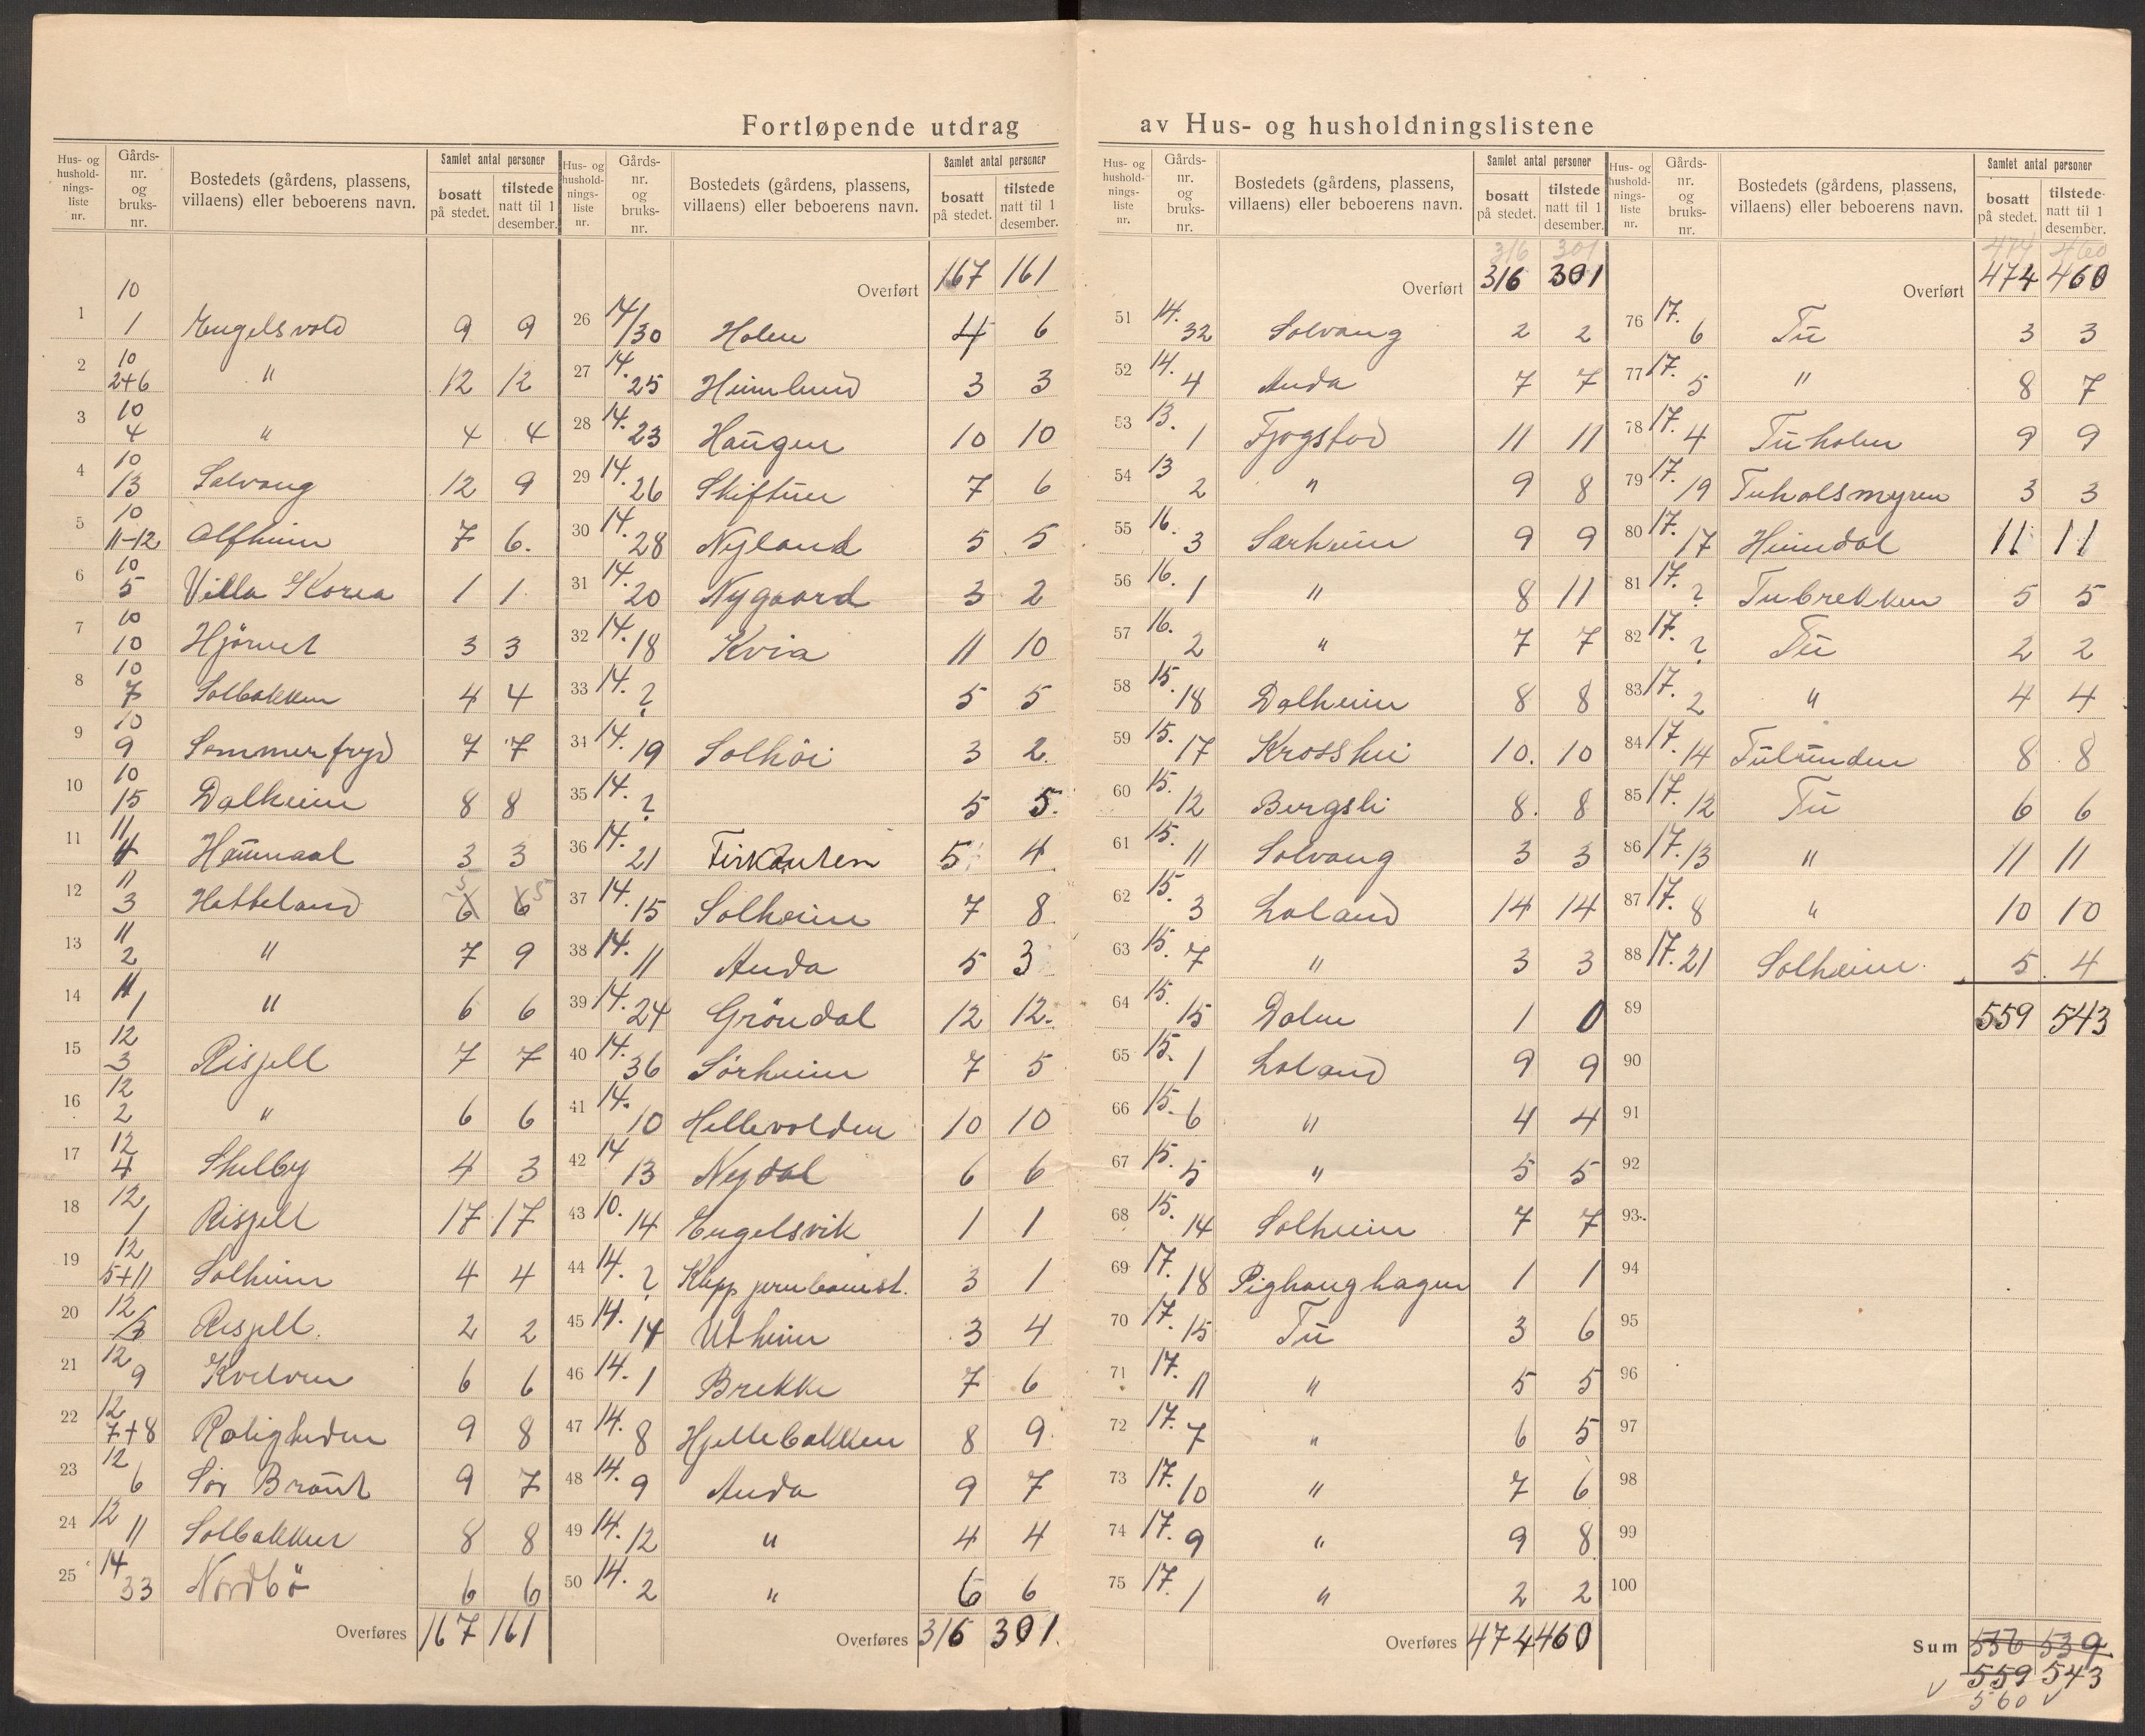 Fortløpende utdrag av Hus- og husholdningslistene
Hus- og husholdningsliste nr. | Gårds-nr. og bruks-nr. | Bostedets (gårdens, plassens, villaens) eller beboerens navn. | Samlet antal personer bosatt på stedet. | tilstede natt til 1 desember.
1 | 10 1 | Engelsvold | 9 | 9
2 | 10 2+6 | " | 12 | 12
3 | 10 4 | " | 4 | 4
4 | 10 13 | Solvang | 12 | 9
5 | 10 11-12 | Alfheim | 7 | 6.
6 | 10 5 | Villa Korea | 1 | 1
7 | 10 10 | Hjörnet | 3 | 3
8 | 10 7 | Solbakken | 4 | 4
9 | 10 9 | Sommerfryd | 7 | 7
10 | 10 15 | Dalheim | 8 | 8
11 | 11 4 | Haunaal | 3 | 3
12 | 11 3 | Hatteland | 6 5 | 6 5
13 | 11 2 | " | 7 | 9
14 | 11 1 | " | 6 | 6
15 | 12 3 | Risjell | 7 | 7
16 | 12 2 | " | 6 | 6
17 | 12 4 | Skelby | 4 | 3
18 | 12 1 | Risjell | 17 | 17
19 | 12 5+11 | Solheim | 4 | 4
20 | 12 | Risjell. | 2 | 2
21 | 12 9 | Kvelven | 6 | 6
22 | 12 7+8 | Roligheden | 9 | 8
23 | 12 6 | Sör Braut | 9 | 7
24 | 12 11 | Solbakken | 8 | 8
25 | 14 33 | Nordbö | 6 | 6
Overføres 167 161
Hus- og husholdningsliste nr. | Gårds-nr. og bruks-nr. | Bostedets (gårdens, plassens, villaens) eller beboerens navn. | Samlet antal personer bosatt på stedet. | tilstede natt til 1 desember.
Overført 167 161
26 | 14/30 | Holen | 4 | 6
27 | 14. 25 | Heimlund | 3 | 3
28 | 14. 23 | Haugen | 10 | 10
29 | 14. 26 | Skiftun | 7 | 6
30 | 14. 28 | Nyland | 5 | 5
31 | 14. 20 | Nygaard | 3 | 2
32 | 14. 18 | Kvia | 11 | 10
33 | 14. ? | 5 | 5
34 | 14. 19 | Solhöi | 3 | 2.
35 | 14. ? | 5 | 5.
36 | 14. 21 | Firkanten | 5 | 4
37 | 14. 15 | Solheim | 7 | 8
38 | 14. 11 | Anda | 5 | 3
39 | 14. 24 | Gröndal | 12 | 12.
40 | 14. 36 | Sörheim | 7 | 5
41 | 14. 10 | Hellevolden | 10 | 10
42 | 14 13 | Nydal | 6 | 6
43 | 10. 14 | Engelsvik | 1 | 1
44 | 14. ? | Klepp jernbanest. | 3 | 1
45 | 14. 14 | Utheim | 3 | 4
46 | 14. 1 | Brekke | 7 | 6
47 | 14. 8 | Hjellebakken | 8 | 9
48 | 14. 9 | Anda | 9 | 7
49 | 14. 12 | " | 4 | 4
50 | 14. 2 | " | 6 | 6
Overføres 316 301.
Hus- og husholdningsliste nr. | Gårds-nr. og bruks-nr. | Bostedets (gårdens, plassens, villaens) eller beboerens navn. | Samlet antal personer bosatt på stedet. | tilstede natt til 1 desember.
316 301
Overført 316 301
51 | 14. 32 | Solvang | 2 | 2
52 | 14. 4 | Anda | 7 | 7
53 | 13. 1 | Fjogstad | 11 | 11
54 | 13 2 | " | 9 | 8
55 | 16. 3 | Sarheim | 9 | 9
56 | 16. 1 | " | 8 | 11
57 | 16. 2 | " | 7 | 7
58 | 15. 18 | Dalheim | 8 | 8
59 | 15. 17 | Krosshei | 10. | 10
60 | 15. 12 | Bergsli | 8. | 8
61 | 15. 11 | Solvang | 3 | 3
62 | 15. 3 | Laland | 14 | 14
63 | 15. 7 | " | 3 | 3
64 | 15. 15 | Dalen | 1 | 0
65 | 15. 1 | Laland | 9 | 9
66 | 15. 6 | " | 4 | 4
67 | 15. 5 | " | 5 | 5
68 | 15. 14 | Solheim | 7 | 7
69 | 17. 18 | Pighaughagen | 1 | 1
70 | 17. 15 | Tu | 3 | 6
71 | 17. 11 | " | 5 | 5
72 | 17. 7 | " | 6 | 5
73 | 17. 10 | " | 7 | 6
74 | 17. 9 | " | 9 | 8
75 | 17. 1 | " | 2 | 2
Overføres 474 460
Hus- og husholdningsliste nr. | Gårds-nr. og bruks-nr. | Bostedets (gårdens, plassens, villaens) eller beboerens navn. | Samlet antal personer bosatt på stedet. | tilstede natt til 1 desember.
474 460
Overført 474 460
76 | 17. 6 | Tu | 3 | 3
77 | 17. 5 | " | 8 | 7
78 | 17. 4 | Tuholen | 9 | 9
79 | 17. 19 | Tuholsmyren | 3 | 3
80 | 17. 17 | Heimdal | 11 | 11
81 | 17. ? | Tubrekken | 5 | 5
82 | 17. ? | Tu | 2 | 2
83 | 17. 2 | " | 4 | 4
84 | 17. 14 | Tulunden | 8 | 8
85 | 17. 12 | Tu | 6 | 6
86 | 17. 13 | " | 11 | 11
87 | 17. 8 | " | 10 | 10
88 | 17. 21 | Solheim. | 5. | 4
89 | 559 | 543
90
91
92
93
94
95
96
97
98
99
100
Sum 536 539
559 543
560